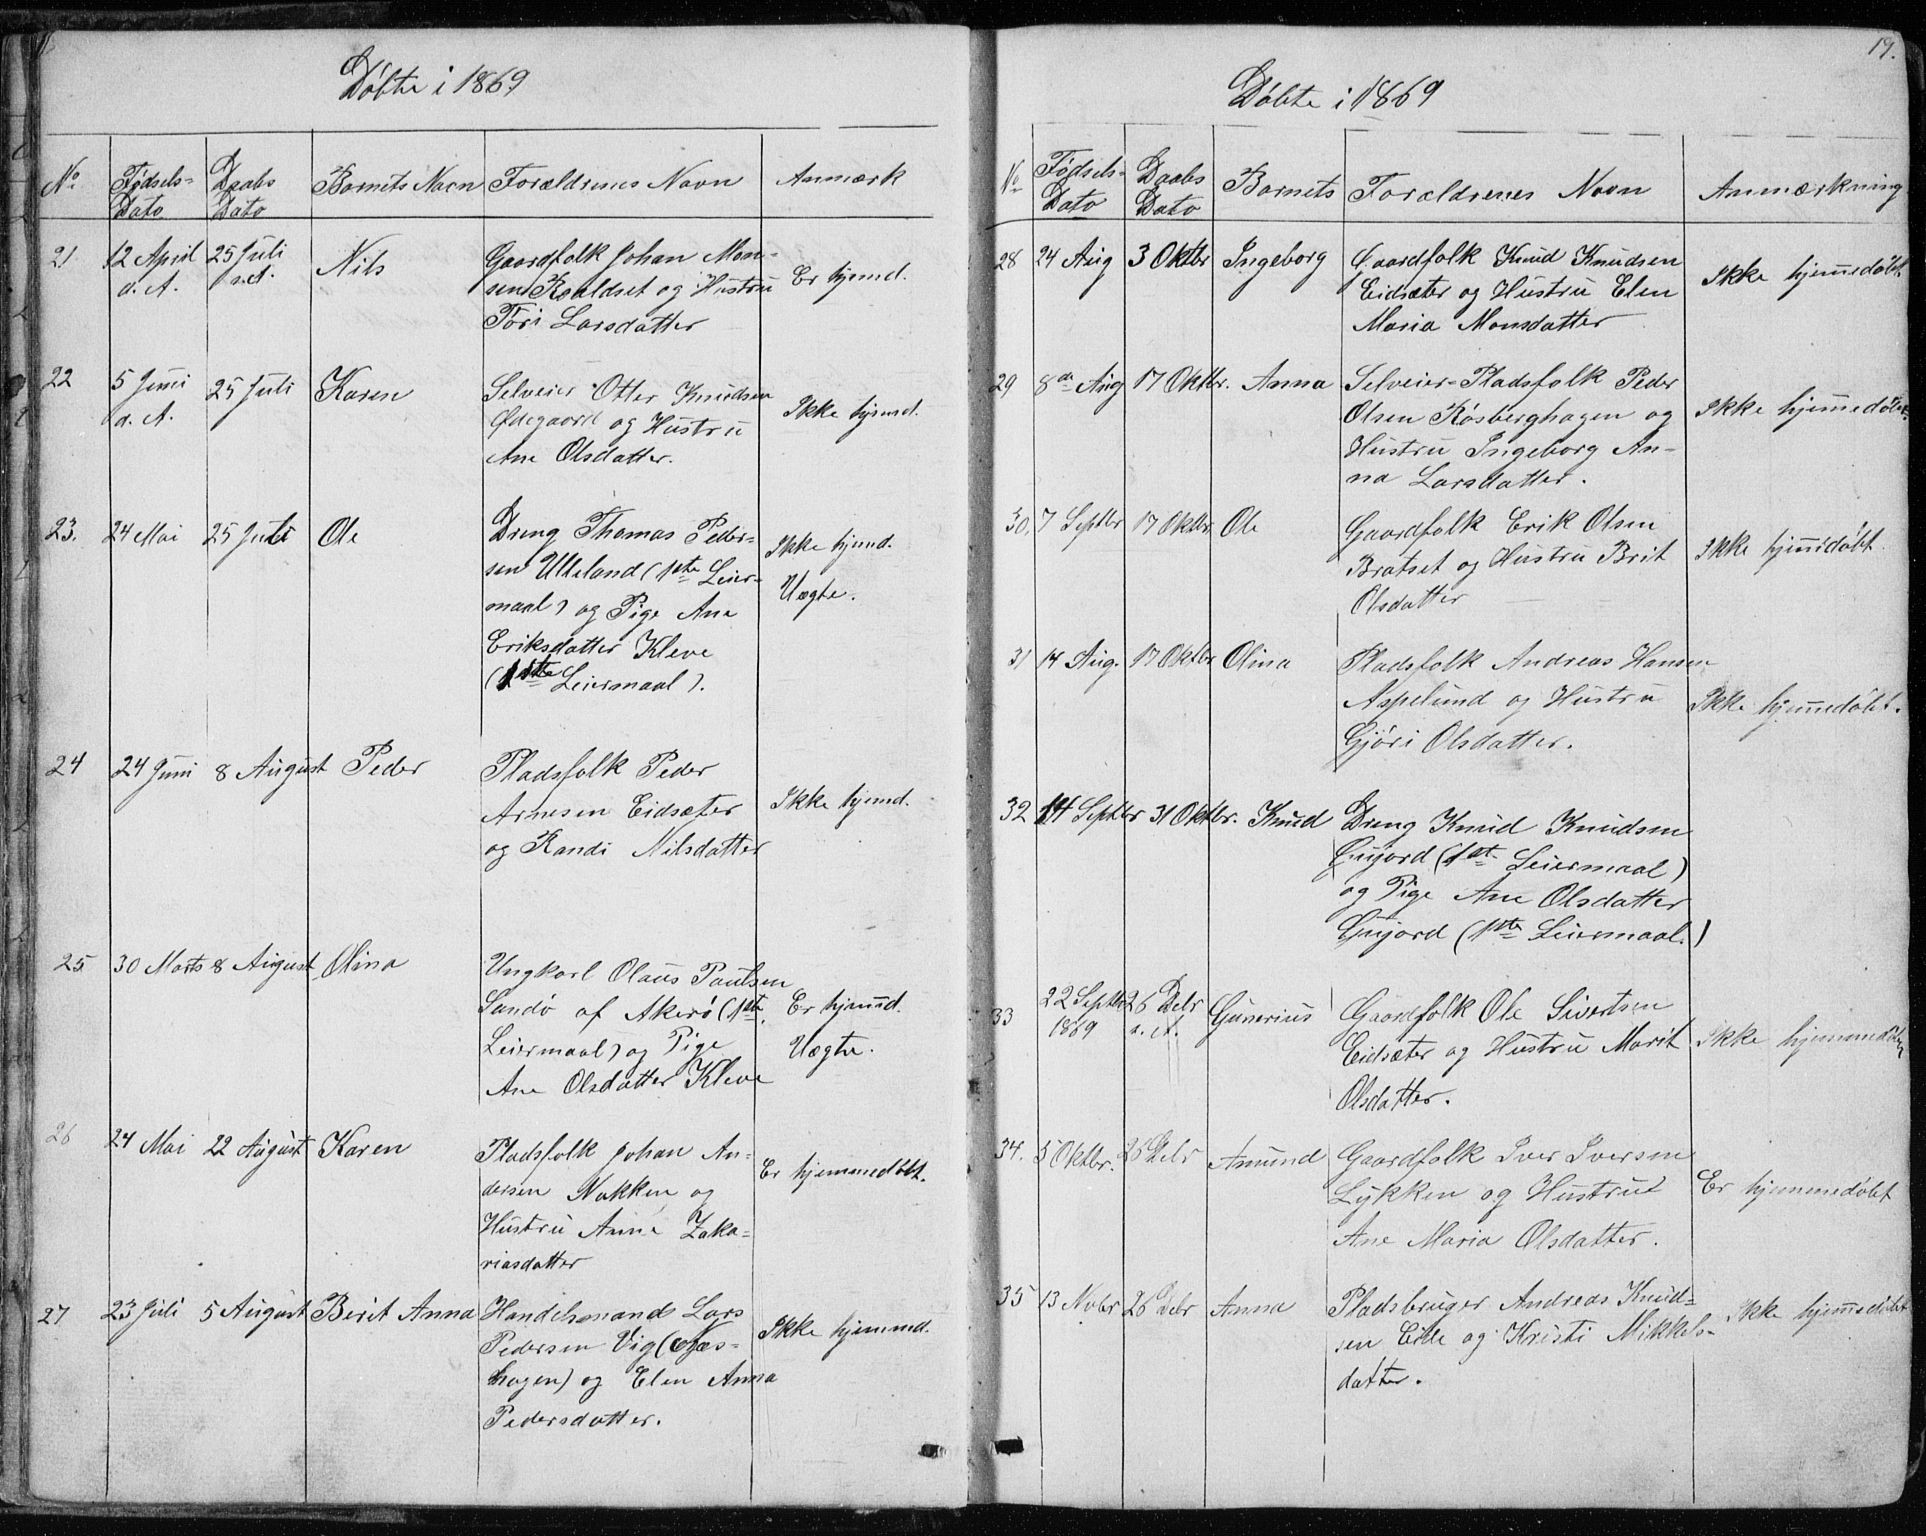 Døbte i 1869
No
Fødsels-
Dato
Daabs
Dato
Barnets Navn
Forældrenes Navn
Anmærk
21
12 April
d. A.
25 Juli
s.A.
Nils
Gaardfolk Johan Mon-
sen Roaldset og Hustru
Töri Larsdatter
Er hjemd.
22
5 Juni
d. A.
25 Juli
Karen
Selveier Otter Knudsen
Ødegaard og Hustru
Ane Olsdatter.
Ikke hjemd.
23.
24 Mai
25 Juli
Ole
Dreng Thomas Peder-
sen Ulleland (1ste Leier-
maal) og Pige Ane
Eriksdatter Kleve
(1ste Leiermaal).
Ikke hjemd.
Uægte.
24
24 Juni
8 August
Peder
Pladsfolk Peder
Arnesen Eidsæter
og Randi Nilsdatter
Ikke hjemd.
25.
30 Marts
8 August
Olina
Ungkarl Olaus Paulsen
Sandö af Akerö (1ste
Leiermaal) og Pige
Ane Olsdatter Kleve
Er hjemd.
Uægte.
26
24 Mai
22 August
Karen
Pladsfolk Johan An-
dersen Nakken og
Hustru Anne Zaka-
riasdatter
Er hjemmedöbt.
27
23 Juli
5 August
Berit Anna
Handelsmand Lars
Pedersen Vig (Næs-
hagen) og Elen Anna
Pedersdatter.
Ikke hjemmd.
19.
Döbte i 1869
No
Fødsels-
Dato
Daabs
Dato
Barnets
Forældrenes Navn
Anmærkning
28
24 Aug
3 Oktbr
Ingeborg
Gaardfolk Knud Knudsen
Eidsæter og Hustru Elen
Maria Monsdatter
Ikke hjemmedöbt
29
8de Aug
17 Oktbr.
Anna
Selveier-Pladsfolk Peder
Olsen Røsberghagen og
Hustru Ingeborg An-
na Larsdatter.
Ikke hjemmedöbt.
30.
7 Septbr
17 Oktbr
Ole
Gaardfolk Erik Olsen
Bratset og Hustru Brit
Olsdatter
Ikke hjemmedöbt.
31
14 Aug.
17 Oktbr
Olina
Pladsfolk Andreas Hansen
Aspelund og Hustru
Gjöri Olsdatter.
Ikke hjemmedöbt.
32
14 Septbr
31 Oktbr.
Knud
Dreng Knud Knudsen
Gujord (1ste Leiermaal)
og Pige Ane Olsdatter
Gujord (1ste Leiermaal.)
33
22 Septbr
1869
26 Debr
s. A.
Gunerius
Gaardfolk Ole Sivertsen
Eidsæter og Hustru Marit
Olsdatter.
Ikke hjemmedöbt
34.
5 Oktbr.
26 Debr
Amund
Gaardfolk Iver Iversen
Lykken og Hustrue
Ane Maria Olsdatter.
Er hjemmedöbt
35
13 Novbr
26 Debr
Anna
Pladsbruger Andreas Knud-
sen Eide og Kristi Mikkels-
datter.
Ikke hjemmedöbt